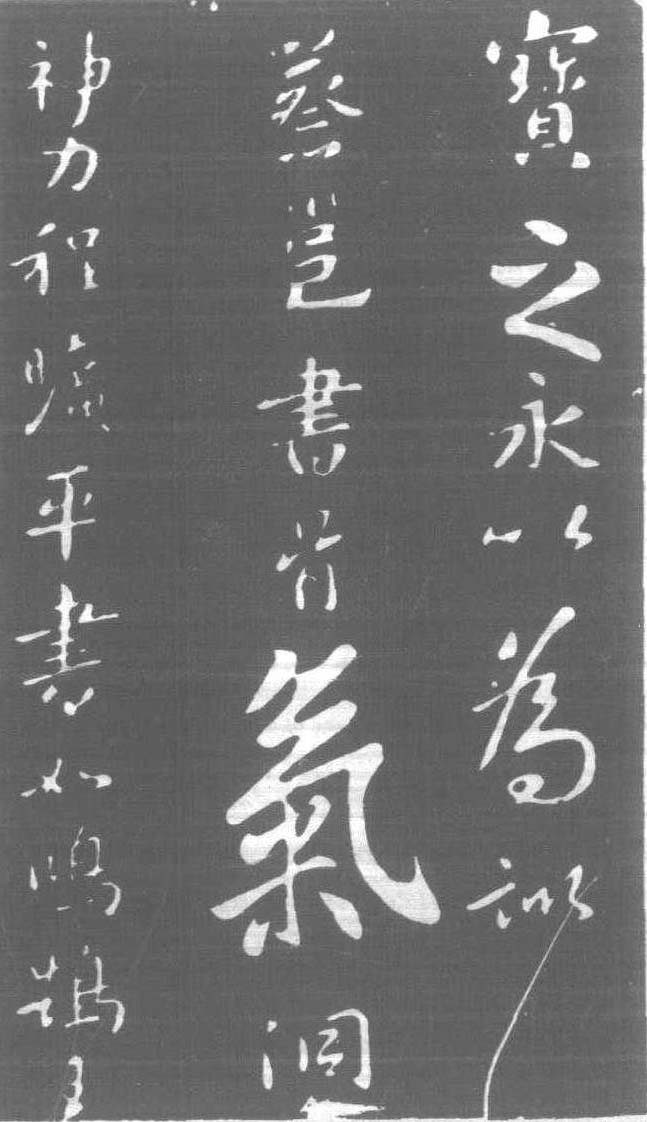 寶之永以為訓
蔡邕書骨氣洞
神力程曠平書如鳴鵠